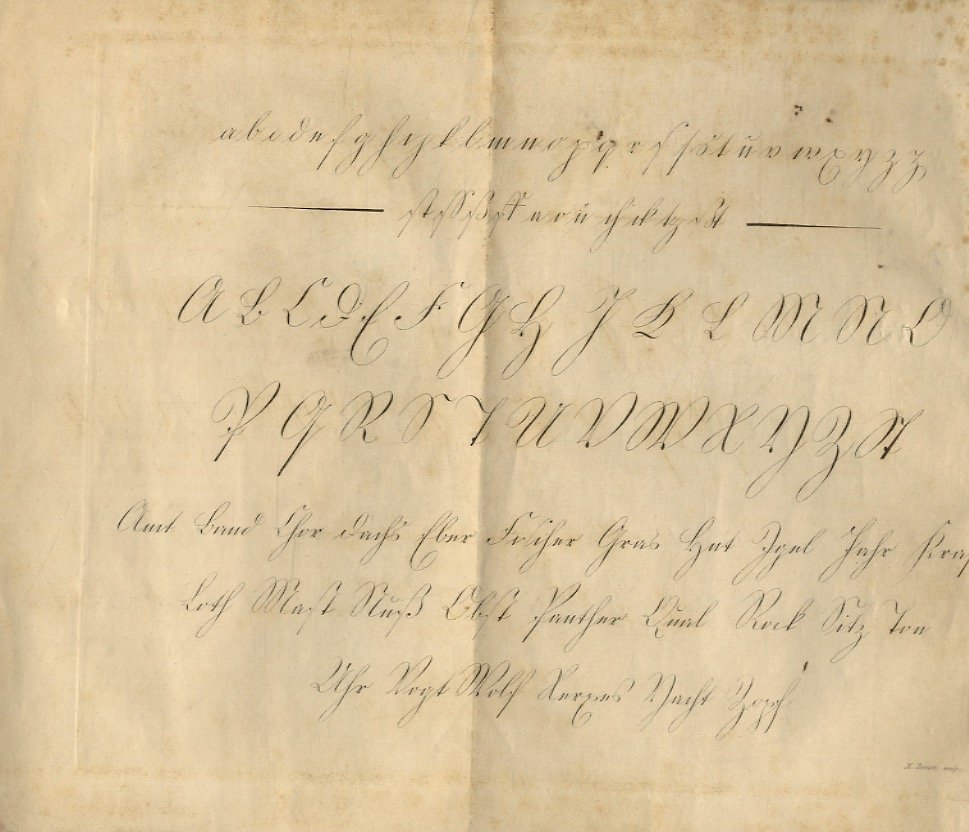 a b c d e f g h i j k l m n o p q r ſ s t u v w x y z
ä ö ü ch ck tz ſt
A B C D E F G H J K L M N O
P Q R S T U V W X Y Z St
Amt Band Chor Dachs Eber Fischer Gras Hut Igel Jahr
Loth Mast Nuß Obst Panther Qual Rock Sitz Ton
Uhr Vogt Wolf Xerxes Yacht Zopf